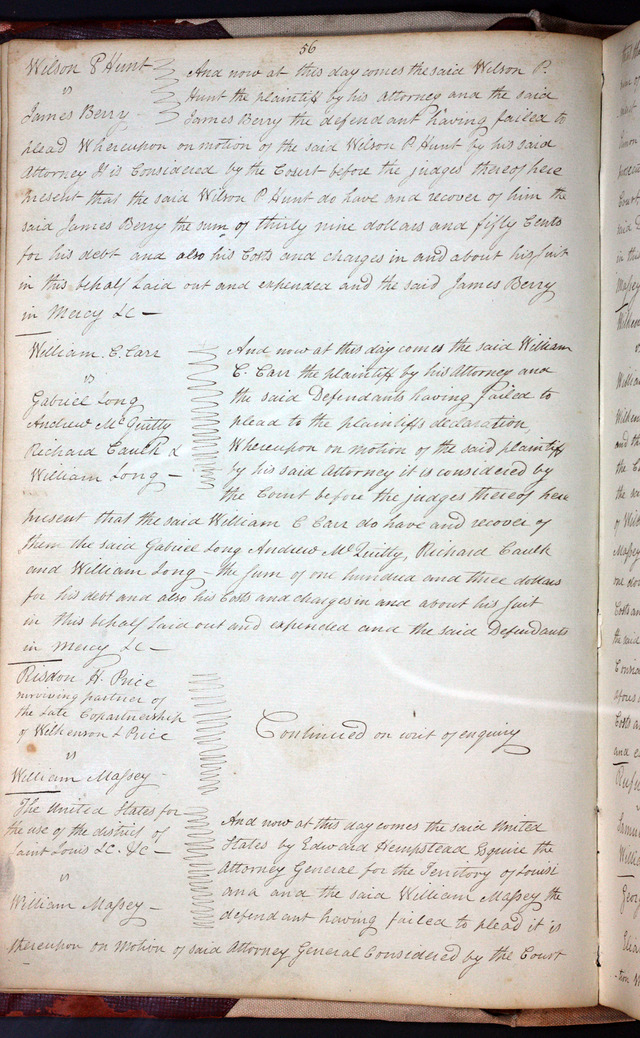 56
Wilson P Hunt
vs
James Berry -
And now at this day comes the said Wilson P.
Hunt the plaintiff by his Attorney and the said
James Berry the defendant having failed to
plead Whereupon on motion of the said Wilson P Hunt by his said
Attorney It is Considered by the Court before the judges thereof here
present that the said Wilson P Hunt do have and recover of him the
said James Berry the sum of thirty nine dollars and fifty Cents
for his debt and also his Costs and charges in and about his suit
in this behalf Laid out and expended and the said James Berry
in Mercy &c —
William C. Carr
vs
Gabriel Long
Andrew McQuitty
Richard Caulk &
William Long -
And now at this day comes the said William
C. Carr the plaintiff by his Attorney and
the said Defendants having failed to
plead to the plaintiffs declaration,
Whereupon on motion of the said plaintiff
by his said Attorney it is considered by
the Court before the judges thereof here
present that the said William C Carr do have and recover of
them the said Gabriel Long Andrew McQuitty, Richard Caulk
and William Long - the sum of one hundred and three dollars
for his debt and also his Costs and charges in and about his suit
in this behalf Laid out and expended and the said Defendants
in mercy &c —
Risdon H. Price
surviving partner of
the Late Copartnership
of Wilkenson & Price
vs
William Massey -
Continued on writ of enquiry
The United States for
the use of the district of
Saint Louis &c. &c —
vs
William Massey -
And now at this day comes the said United
States by Edward Hempstead Esquire the
Attorney General for the Territory of Louisi
ana and the said William Massey the
defendant having failed to plead it is
thereupon on Motion of said Attorney General Considered by the Court